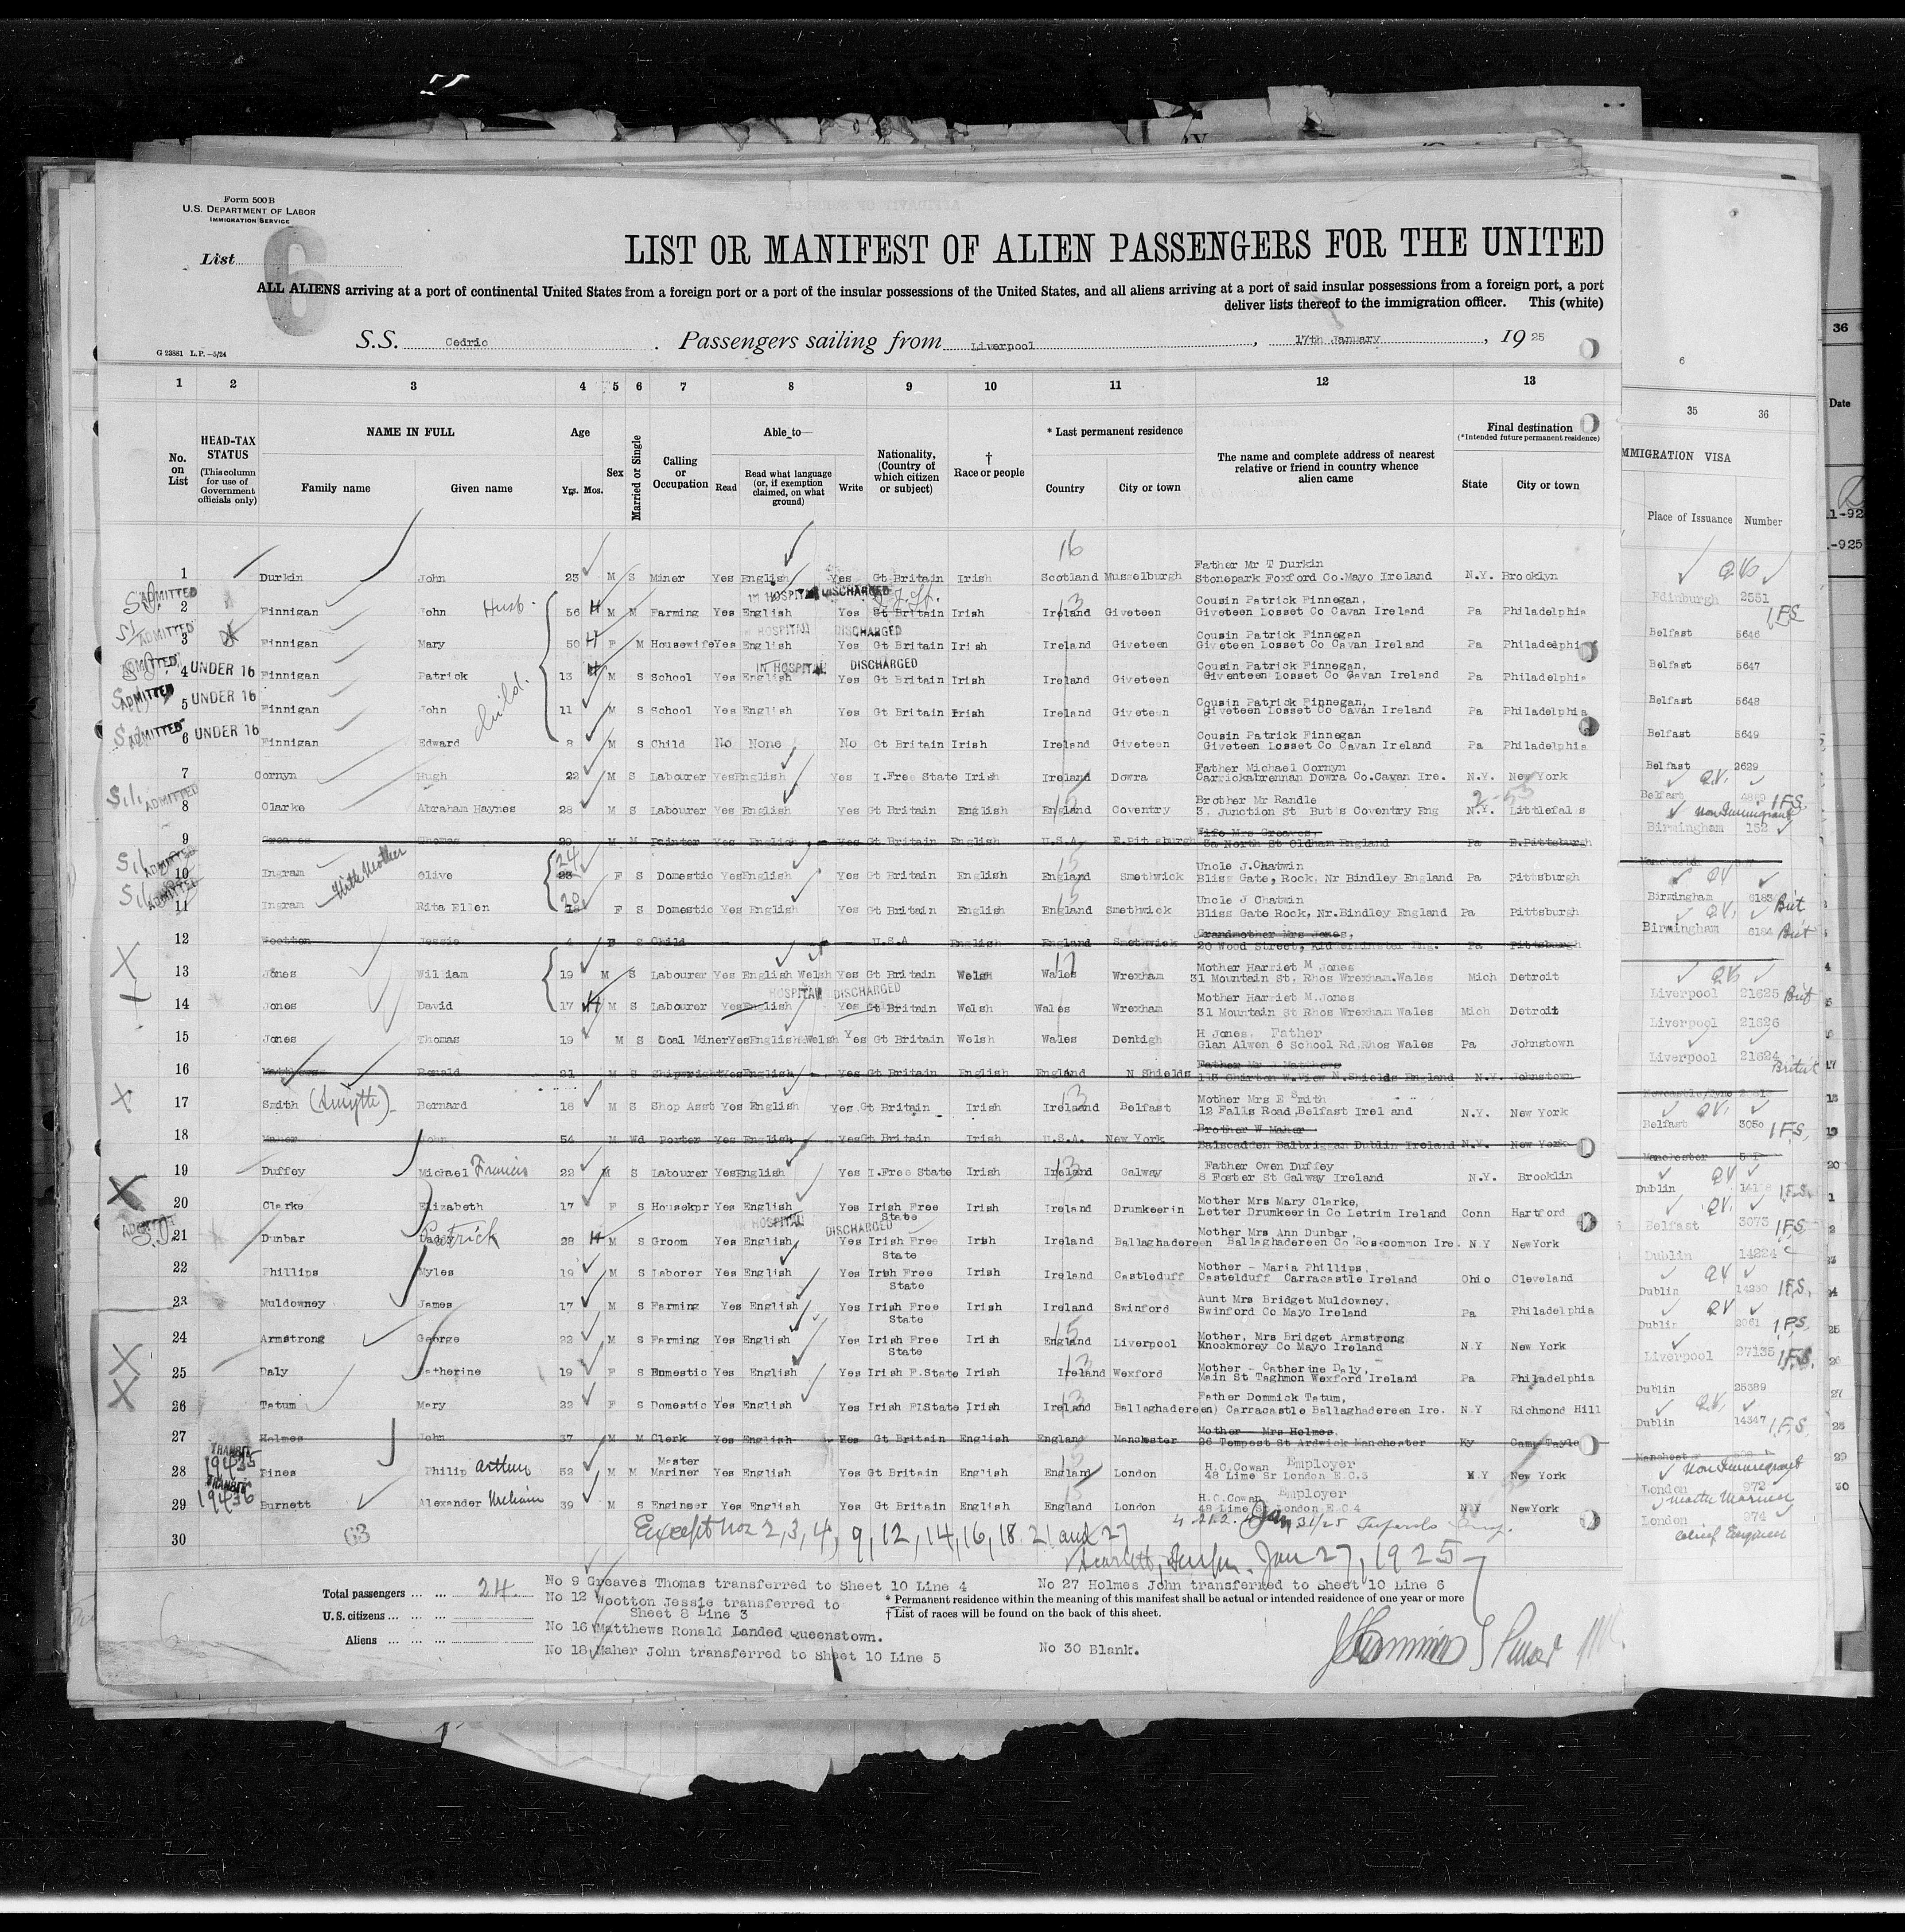 Form 500 B
U.S. DEPARTMENT OF LABOR
IMMIGRATION SERVICE
List 6
LIST OR MANIFEST OF ALIEN PASSENGERS FOR THE UNITED
ALL ALIENS arriving at a port of continental United States from a foreign port or a port of the insular possessions of the United States, and all aliens arriving at a port of said insular possessions from a foreign port, a port
deliver lists thereof to the immigration officer. This (white)
S.S. Cedric. Passengers sailing from Liverpool, 17th January, 1925
G 23881 L.P.-5/24
6
36
1 2 3 4 5 6 7 8 9 10 11 12 13
35 36
Date
No. on List
HEAD-TAX STATUS (This column for use of Government officials only)
NAME IN FULL
Family name Given name
Age Yrs. Mos.
Sex
Married or Single
Calling or Occupation
Able to—
Read
Read what language (or, if exemption claimed, on what ground)
Write
Nationality, (Country of which citizen or subject)
† Race or people
* Last permanent residence
Country City or town
The name and complete address of nearest relative or friend in country whence alien came
Final destination (*Intended future permanent residence)
State City or town
MMIGRATION VISA
Place of Issuance Number
16
1 Durkin John 23 M S Miner Yes English Yes Gt Britain Irish Scotland Musselburgh Father Mr T Durkin Stonepark Foxford Co.Mayo Ireland N.Y. Brooklyn
Edinburgh 2551
ADMITTED 2 Finnigan John Husb. 56 M M Farming Yes English Yes Gt Britain Irish Ireland Giveteen Cousin Patrick Finnegan, Giveteen Losset Co Cavan Ireland Pa Philadelphia
IN HOSPITAL DISCHARGED
Belfast 5646
ADMITTED 3 Finnigan Mary 50 F M Housewife Yes English Yes Gt Britain Irish Ireland Giveteen Cousin Patrick Finnegan Giveteen Losset Co Cavan Ireland Pa Philadelphia
HOSPITAL DISCHARGED
Belfast 5647
ADMITTED 4 UNDER 16 Finnigan Patrick 13 M S School Yes English Yes Gt Britain Irish Ireland Giveteen Cousin Patrick Finnegan, Giventeen Losset Co Cavan Ireland Pa Philadelphia
IN HOSPITAL DISCHARGED
Belfast 5648
ADMITTED 5 UNDER 16 Finnigan John child. 11 M S School Yes English Yes Gt Britain Irish Ireland Giveteen Cousin Patrick Finnegan, Giveteen Losset Co Cavan Ireland Pa Philadelphia
Belfast 5649
ADMITTED 6 UNDER 16 Finnigan Edward 8 M S Child No None No Gt Britain Irish Ireland Giveteen Cousin Patrick Finnegan Giveteen Losset Co Cavan Ireland Pa Philadelphia
Belfast 2629
7 Cornyn Hugh 22 M S Labourer Yes English Yes I.Free State Irish Ireland Dowra Father Michael Cornyn Carrickabrennan Dowra Co.Cavan Ire. N.Y. New York
Belfast
S.I. ADMITTED 8 Clarke Abraham Haynes 28 M S Labourer Yes English Yes Gt Britain English England Coventry Brother Mr Randle 3, Junction St Buts Coventry Eng N.Y. Littlefals
Non Immigrant
Birmingham 152
9 Greaves Thomas 29 M M Painter Yes English Yes Gt Britain English U.S.A E.Pittsburgh Wife Mrs Greaves, 5a North St Oldham England Pa E.Pittsburgh
S.I. ADMITTED 10 Ingram Olive 24 F S Domestic Yes English Yes Gt Britain English England Smethwick Uncle J.Chatwin Bliss Gate, Rock, Nr Bindley England Pa Pittsburgh
With Mother
Birmingham 6183 Brit
S.I. ADMITTED 11 Ingram Rita Ellen 20 F S Domestic Yes English Yes Gt Britain English England Smethwick Uncle J Chatwin Bliss Gate Rock, Nr.Bindley England Pa Pittsburgh
Birmingham 6184 Brit
12 Wootton Jessie 4 F S Child U.S.A English England Smethwick Grandmother Mrs Jones, 20 Wood Street, Kidderminster Eng. Pa Pittsburgh
13 Jones William 19 M S Labourer Yes English Welsh Yes Gt Britain Welsh Wales Wrexham Mother Harriet M Jones 31 Mountain St. Rhos Wrexham.Wales Mich Detroit
HOSPITAL DISCHARGED
Liverpool 21625 Brit
14 Jones David 17 M S Labourer Yes English Yes Gt Britain Welsh Wales Wrexham Mother Harriet M.Jones 31 Mountain St Rhos Wrexham Wales Mich Detroit
Liverpool 21626
15 Jones Thomas 19 M S Coal Miner Yes English Welsh Yes Gt Britain Welsh Wales Denbigh H Jones, Father Glan Alwen 6 School Rd,Rhos Wales Pa Johnstown
Liverpool 21624
16 Matthews Ronald 21 M S Shipwright Yes English Yes Gt Britain English England N Shields Father Mr Matthews 113 Chirton W.View N.Shields England N.Y. Johnstown
17 Smith (Smyth) Bernard 18 M S Shop Asst Yes English Yes Gt Britain Irish Ireland Belfast Mother Mrs E Smith 12 Falls Road,Belfast Irel and N.Y. New York
Belfast 3050 IFS.
18 Maher John 54 M Wd Porter Yes English Yes Gt Britain Irish U.S.A. New York Brother W Maher Balscadden Balbriggan Dublin Ireland N.Y. New York
19 Duffey Michael Francis 22 M S Labourer Yes English Yes I.Free State Irish Ireland Galway Father Owen Duffey 8 Foster St Galway Ireland N.Y. Brooklin
Dublin IFS.
20 Clarke Elizabeth 17 F S Housekpr Yes English Yes Irish Free State Irish Ireland Drumkeerin Mother Mrs Mary Clarke, Letter Drumkeerin Co Letrim Ireland Conn Hartford
Belfast 3073 IFS
21 Dunbar Patrick 28 M S Groom Yes English Yes Irish Free State Irish Ireland Ballaghadereen Mother Mrs Ann Dunbar, Ballaghadereen Co Roscommon Ire. N.Y NewYork
HOSPITAL DISCHARGED
Dublin 14224
22 Phillips Myles 19 M S Laborer Yes English Yes Irish Free State Irish Ireland Castleduff Mother - Maria Phillips, Castelduff Carracastle Ireland Ohio Cleveland
Dublin 14230 IFS.
23 Muldowney James 17 M S Farming Yes English Yes Irish Free State Irish Ireland Swinford Aunt Mrs Bridget Muldowney, Swinford Co Mayo Ireland Pa Philadelphia
Dublin IFS.
24 Armstrong George 22 M S Farming Yes English Yes Irish Free State Irish England Liverpool Mother, Mrs Bridget Armstrong Knockmorey Co Mayo Ireland N.Y New York
Liverpool 27135 IFS.
25 Daly Catherine 19 F S Domestic Yes English Yes Irish F.State Irish Ireland Wexford Mother - Catherine Daly, Main St Taghmon Wexford Ireland Pa Philadelphia
Dublin 25389
26 Tatum Mary 22 F S Domestic Yes English Yes Irish F.State Irish Ireland Ballaghadereen) Father Dommick Tatum, Carracastle Ballaghadereen Ire. N.Y Richmond Hill
Dublin 14347 IFS.
27 Holmes John 37 M M Clerk Yes English Yes Gt Britain English England Manchester Mother Mrs Holmes, 26 Tempest St Ardwick Manchester Ky Camp Taylo
TRANSIT 19435 28 Pines Philip Arthur 52 M M Master Mariner Yes English Yes Gt Britain English England London H.C.Cowan Employer 48 Lime Sr London E.C.3 N.Y New York
Non Immigrant
London 972 Master Mariner
TRANSIT 19436 29 Burnett Alexander William 39 M S Engineer Yes English Yes Gt Britain English England London H.C.Cowan Employer 48 Lime St London E.C.4 N.Y NewYork
London 974 Chief Engineer
30 63 Except nos 2, 3, 4, 9, 12, 14, 16, 18. 21 and 27
Jan 27, 1925
Total passengers 24.
U.S. citizens
Aliens
No 9 Greaves Thomas transferred to Sheet 10 Line 4
No 12 Wootton Jessie transferred to Sheet 8 Line 3
No 16 Matthews Ronald Landed Queenstown.
No 18 Maher John transferred to Sheet 10 Line 5
No 27 Holmes John transferred to Sheet 10 Line 6
* Permanent residence within the meaning of this manifest shall be actual or intended residence of one year or more
† List of races will be found on the back of this sheet.
No 30 Blank.